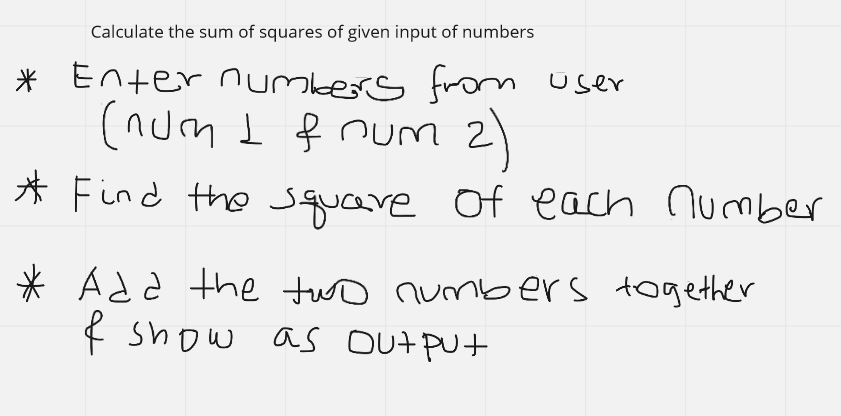 Calculate the sum of squares of given input of numbers
* Enter numbers from user
(num 1 & num 2)
* Find the square of each number
* Add the two numbers together
& show as output